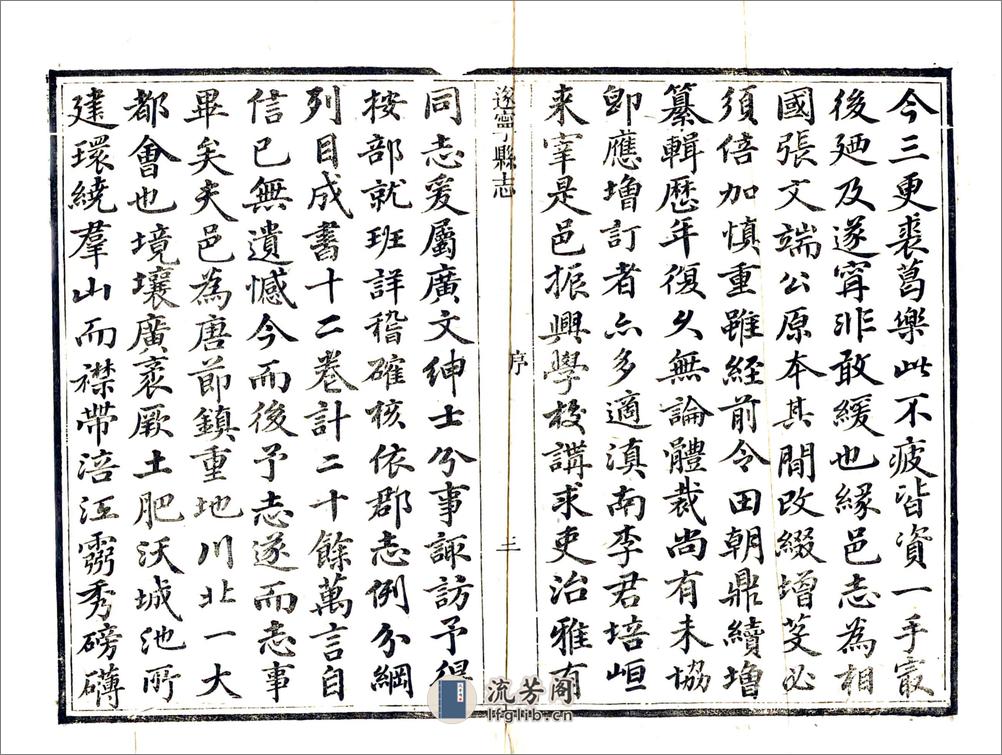 今三更裘葛樂此不疲皆資一手最
後廼及遂甯非敢緩也緣邑志為相
國張文端公原本其間改綴增芟必
須倍加慎重雖經前令田朝鼎續增
纂輯歷年復久無論體裁尚有未協
即應增訂者亦多適滇南李君培峘
來宰是邑振興學校講求吏治雅有
遂寧縣志
序
三
同志爰屬廣文紳士分事諏訪予得
按部就班詳稽確核依郡志例分綱
列目成書十二卷計二十餘萬言自
信已無遺憾今而後予志遂而志事
畢矣夫邑為唐節鎮重地川北一大
都會也境壤廣袤厥土肥沃城池所
建環繞羣山而襟帶涪江靈秀磅礴
流芳阁
lfglib.cn